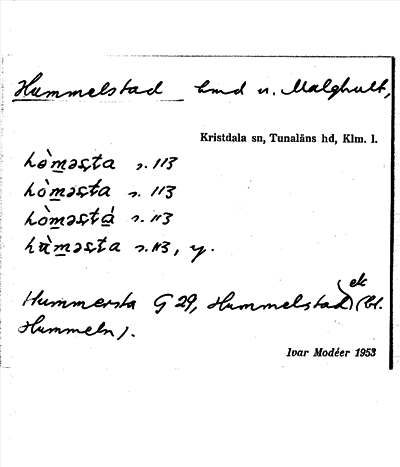 Hummelstad hmd u. Malghult,
Kristdala sn, Tunaläns hd, Klm. l.
hò̀məsta s. 113
hòməsta s. 113
hòməstá s. 113
hùməsta s. 113, y.
ek
Hummersta G 29, Hummelstad (bl.
Hummeln).
Ivar Modéer 1953